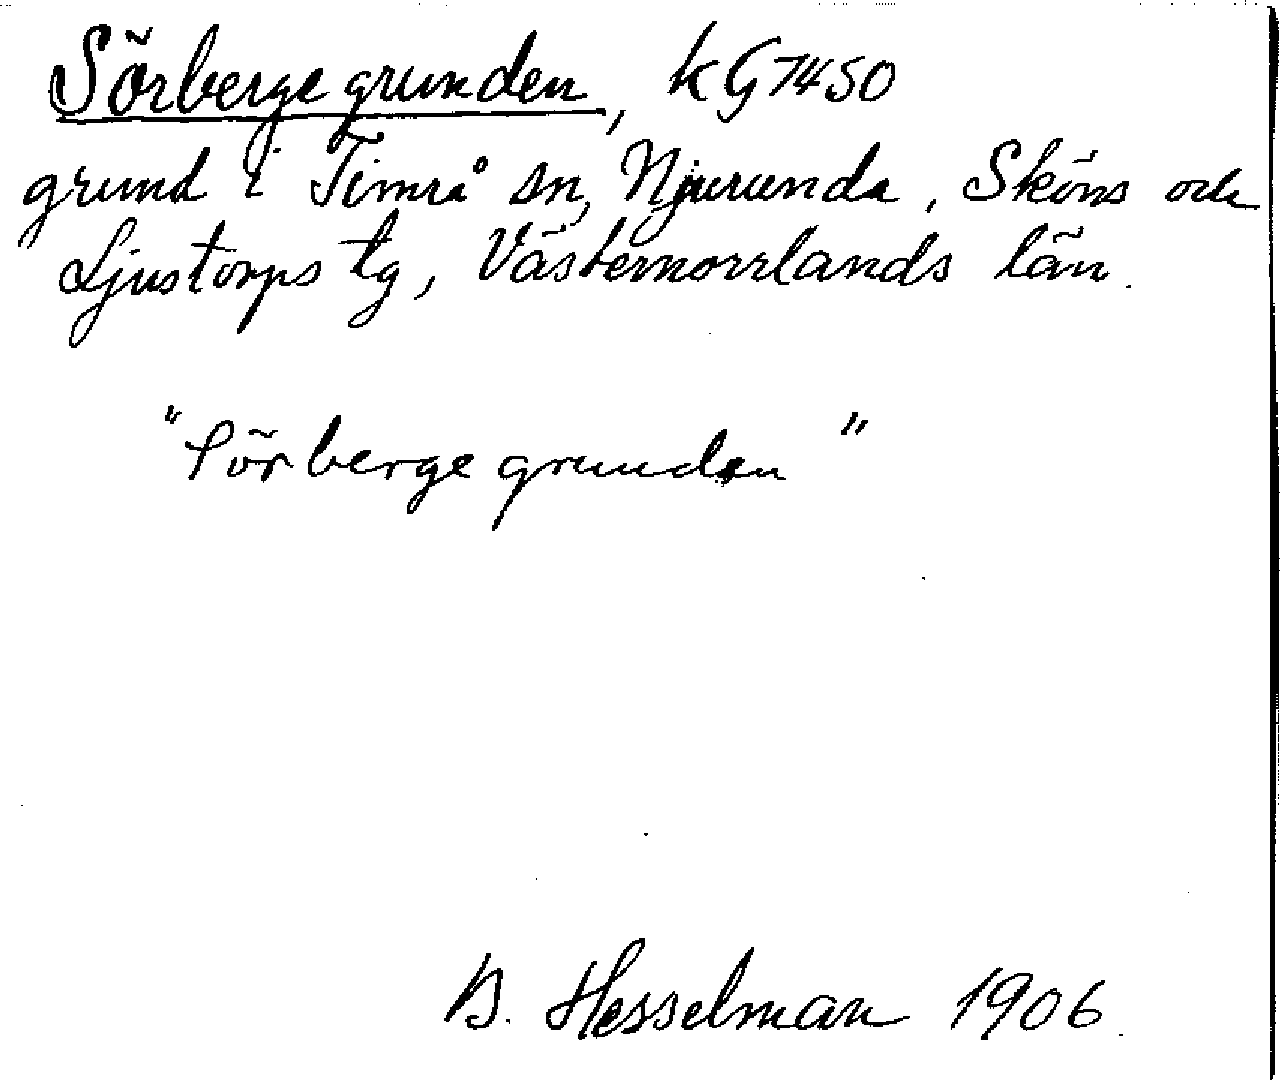 Sörberge grunden, KG7450
grund i Timrå sn, Njurunda, Sköns och
Ljustorps tg, Västernorrlands län.
"Sörberge grunden"
B. Hesselman 1906.